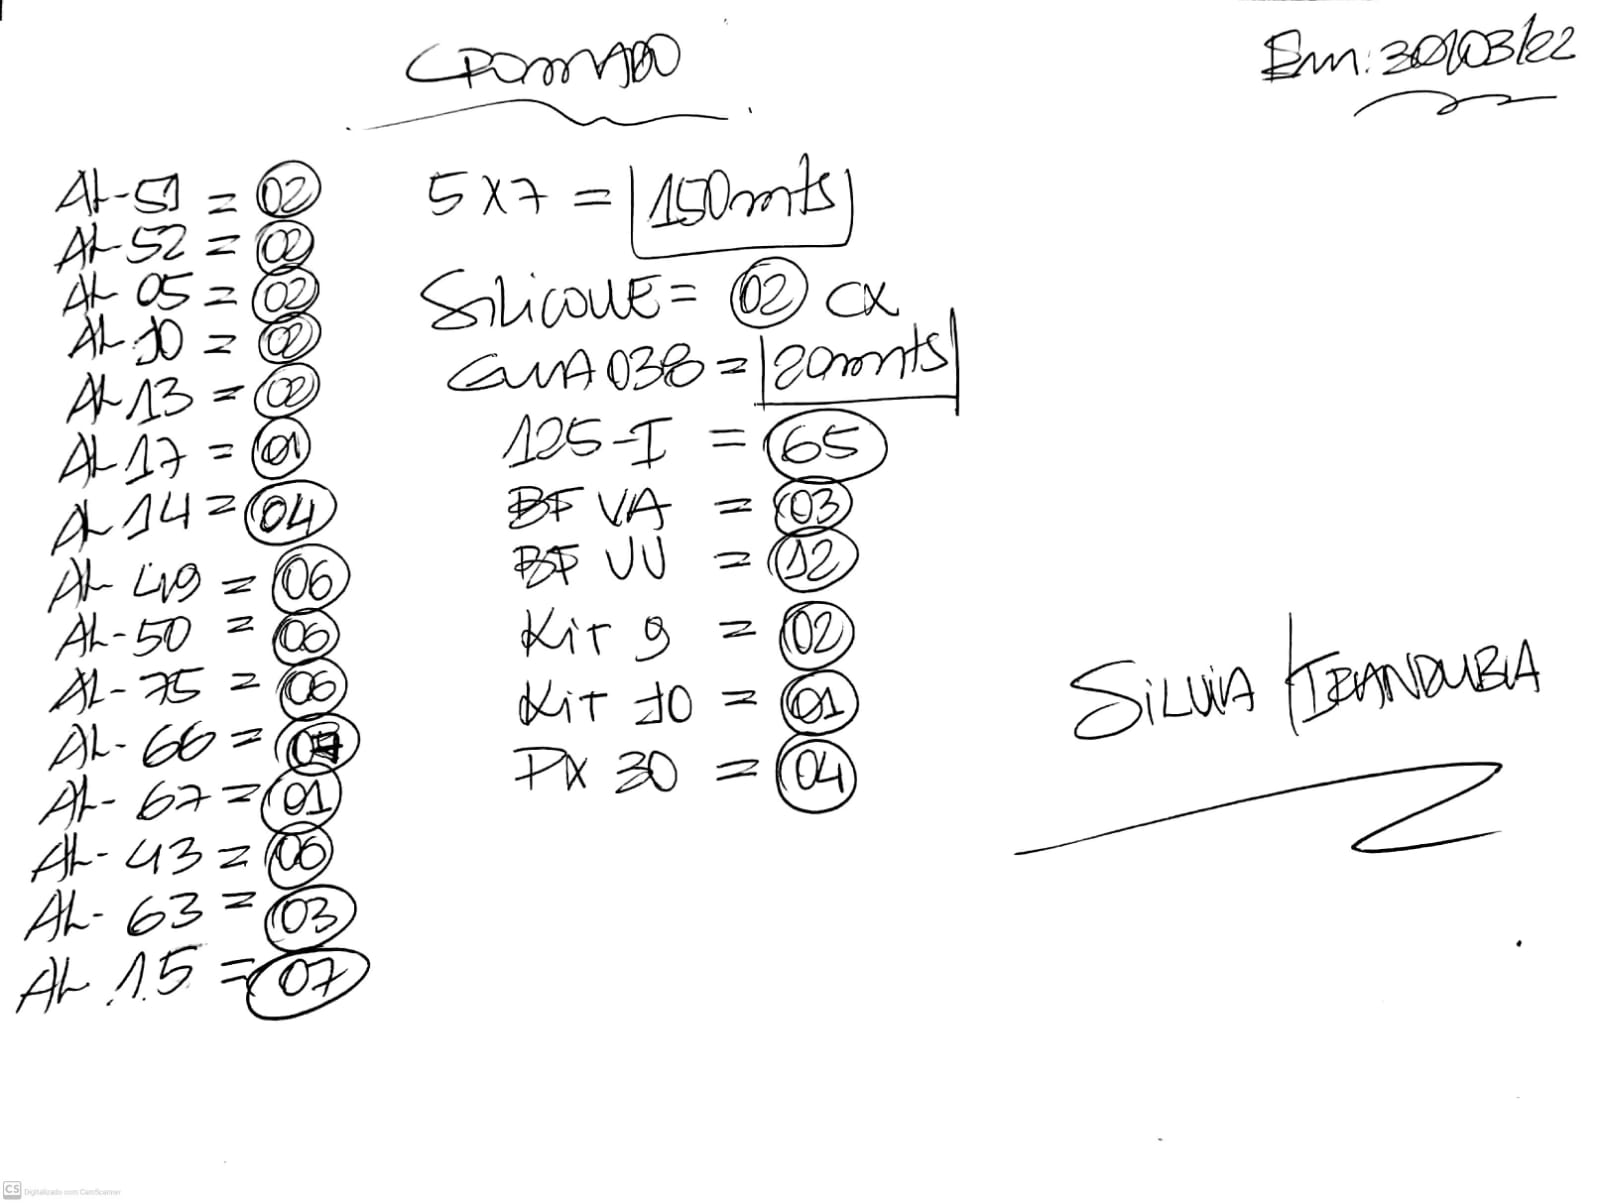 CROMADO
Em: 30/03/22
AL-51 = 02
AL-52 = 02
AL 05 = 02
AL 10 = 02
AL 13 = 02
AL 17 = 01
AL 14 = 04
AL 49 = 06
AL-50 = 06
AL-75 = 06
AL-66 =
AL-67 = 01
AL-43 = 06
AL-63 = 03
AL 15 = 07
5X7 = 150mts
SiLicone = 02 CX
GUIA 038 = 20mts
125-I = 65
BF VA = 03
BF VU = 12
Kit 9 = 02
Kit 10 = 01
PX 30 = 04
SiLVIA / IRANDUBA
CS Digitalizado com CamScanner